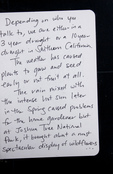 Depending on who you
talk to, we are either in a
3 year drought or a 10 year
drought in Southern California.
The weather has caused
plants to grow and seed
early or not fruit at all.
The rain mixed with
the intense hot sun later
in the Spring caused problems
for the home gardener but
at Joshua Tree National
Park, it brought about a most
spectacular display of wildflowers